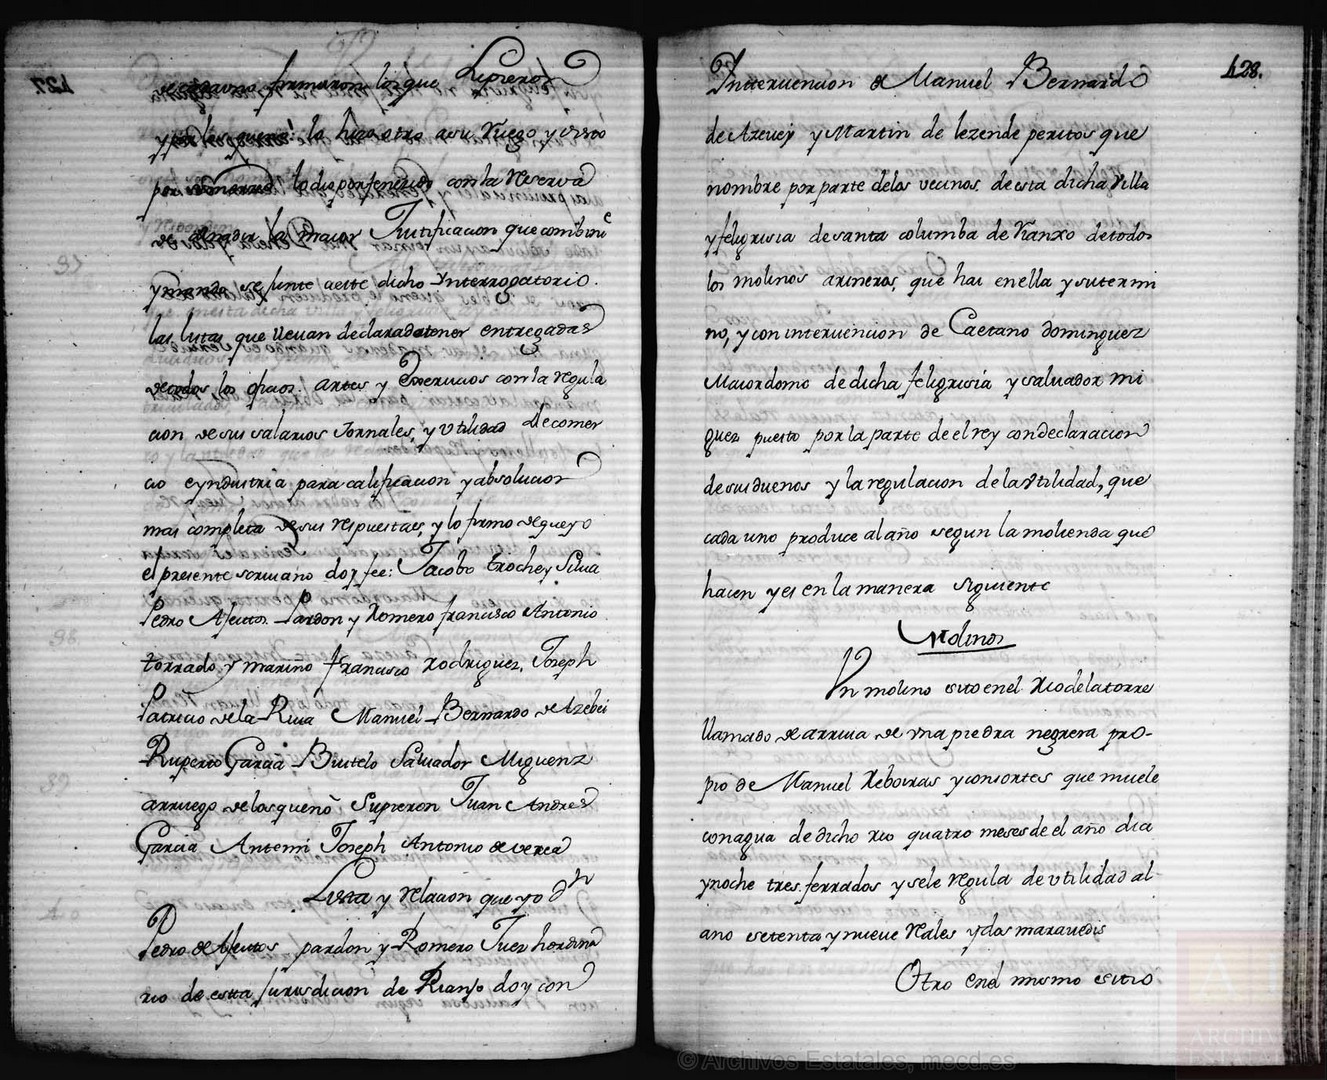 de cada uno firmaron los que supieron
y por los que no: lo hizo otro a su Ruego y visto
por su merced lo dio por fenecido con la reserva
de añadir la maior Justificacion que combenª
y mando se junte a este dicho Ynterrogatorio.
las listas que llevan declarado tener entregadas
de todos los oficios artes y Exercicios con la regula
cion de sus salarios Jornales, y utilidad de comer
cio e yndustria para calificacion y absolucion
mas completa de sus respuestas, y lo firmo de que yo
el presente scrivano doy fee: Jacobo troche y Silva
Pedro Afectos Pardon y Romero francisco Antonio
torrado y marino francisco rodriguez, Joseph
Patricio de la Riva Manuel Bernardo de Azebei
Ruperto Garcia Buitelo Salvador Miguenz
arruego de los que no supieron Juan Andres
Garcia Antemi Joseph Antonio de verea
Lista y relacion que yo Dn
Pedro de Afectos pardon y Romero Juez hordina
rio de esta Jurisdicion de Rianjo doy con
428.
Inttervencion de Manuel Bernardo
de Azevey y Martin de lezende peritos que
nombre por parte de los vecinos de esta dicha villa
y feligrisia de santa columba de rianxo de todos
los molinos arineros, que hai en ella y su termi
no, y con intervencion de Caetano dominguez
Maiordomo de dicha feligrisia y salvador mi
guez puesto por la parte de el rey con declaracion
de sus duenos y la regulacion de la utilidad, que
cada uno produce al año segun la molienda que
hacen y es en la manera siguiente
Molinos
Un molino sito en el Rio de la torre
llamado de arriva de una piedra negrera pro-
pio de Manuel Reboiras y consortes que muele
con agua de dicho rio quatro meses de el año dia
y noche tres ferrados y se le regula de utilidad al
ano setenta y nueve reales y dos maravedis
Otro en el mismo sitio
© Archivos Estatales, mecd.es